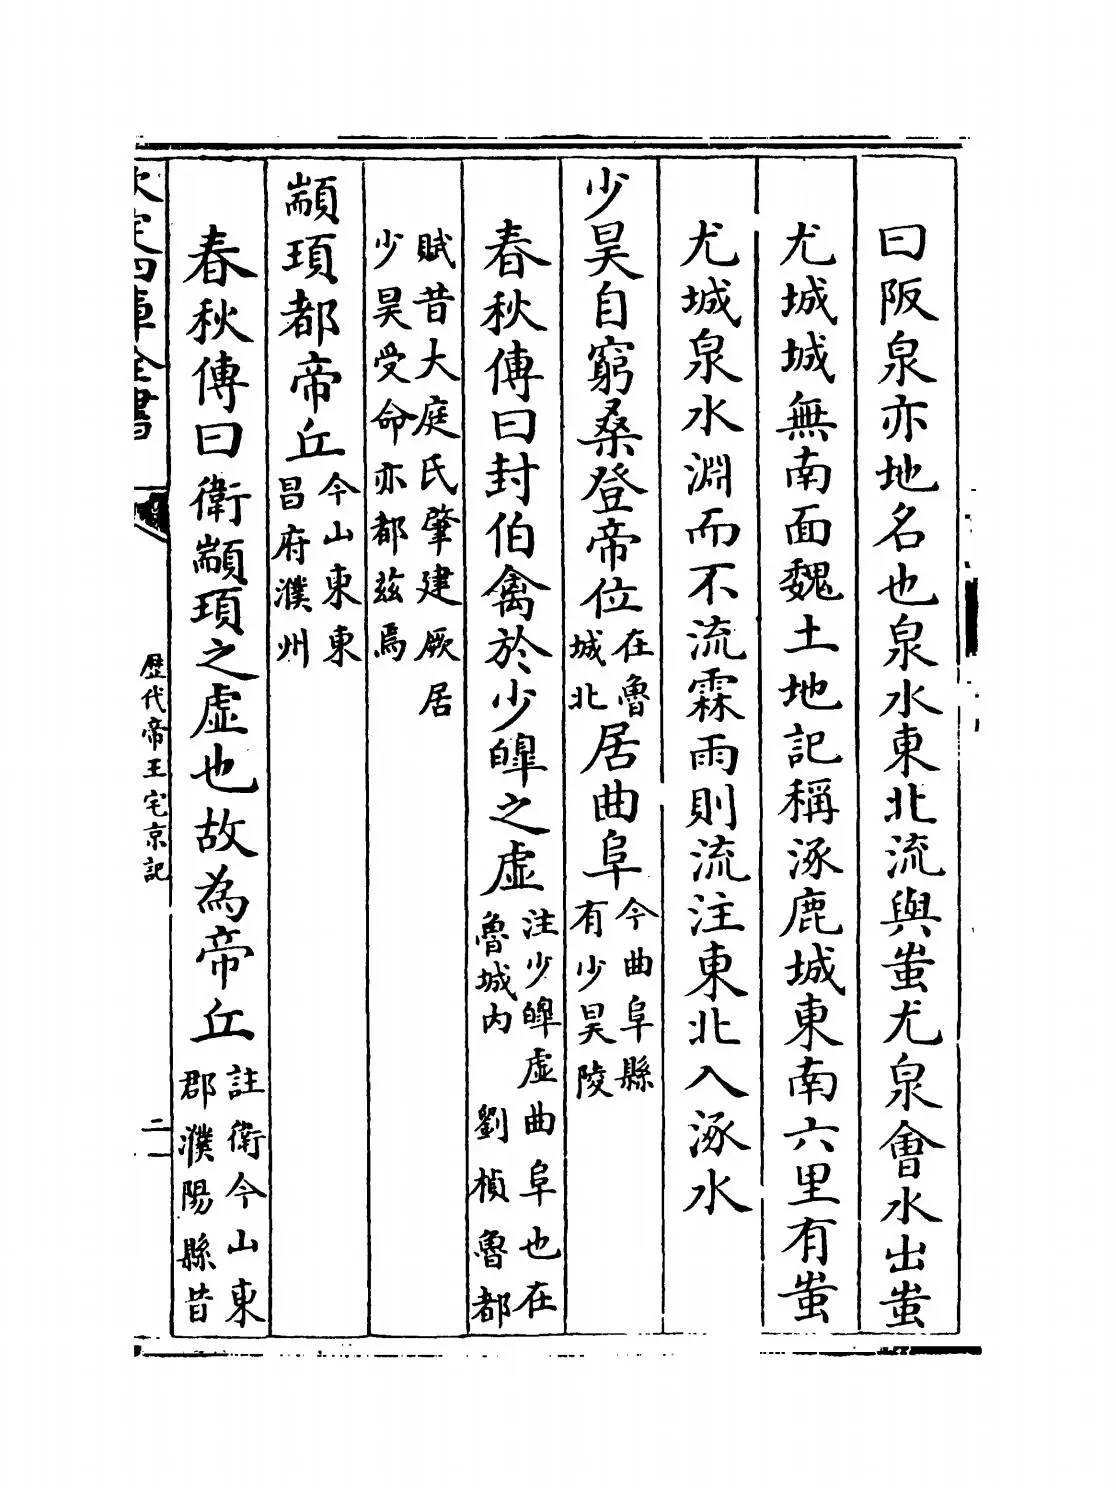 曰阪泉亦地名也泉水東北流與蚩尤泉會水出蚩
尤城城無南面魏土地記稱涿鹿城東南六里有蚩
尤城泉水淵而不流霖雨則流注東北入涿水
少昊自窮桑登帝位在魯城北居曲阜今曲阜縣有少昊陵
春秋傳曰封伯禽於少皥之虛注少皥虛曲阜也在魯城内 劉楨魯都
賦昔大庭氏肇建厥居少昊受命亦都兹焉
顓頊都帝丘今山東東昌府濮州
春秋傳曰衛顓頊之虛也故為帝丘註衛今山東東郡濮陽縣昔
欽定四庫全書
歷代帝王宅京記
二